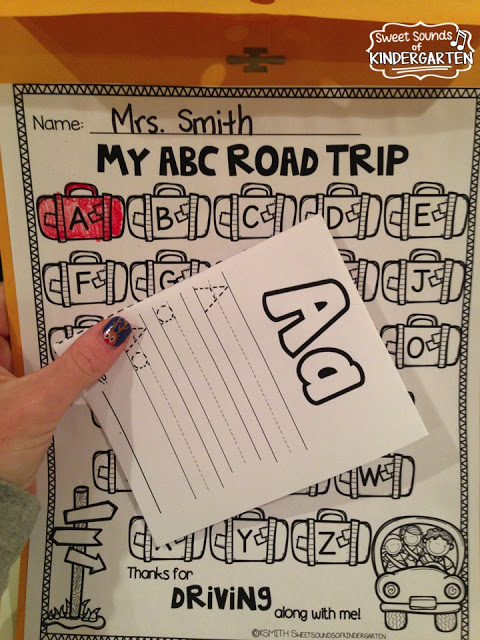 Sweet Sounds
of
KINDERGARTEN
Name: Mrs. Smith
MY ABC ROAD TRIP
A B C D E
F G J
O
Aa
A
a
W
Y Z
Thanks for
DRIVING
along with me!
©KSMITH SWEETSOUNDSOFKINDERGARTEN